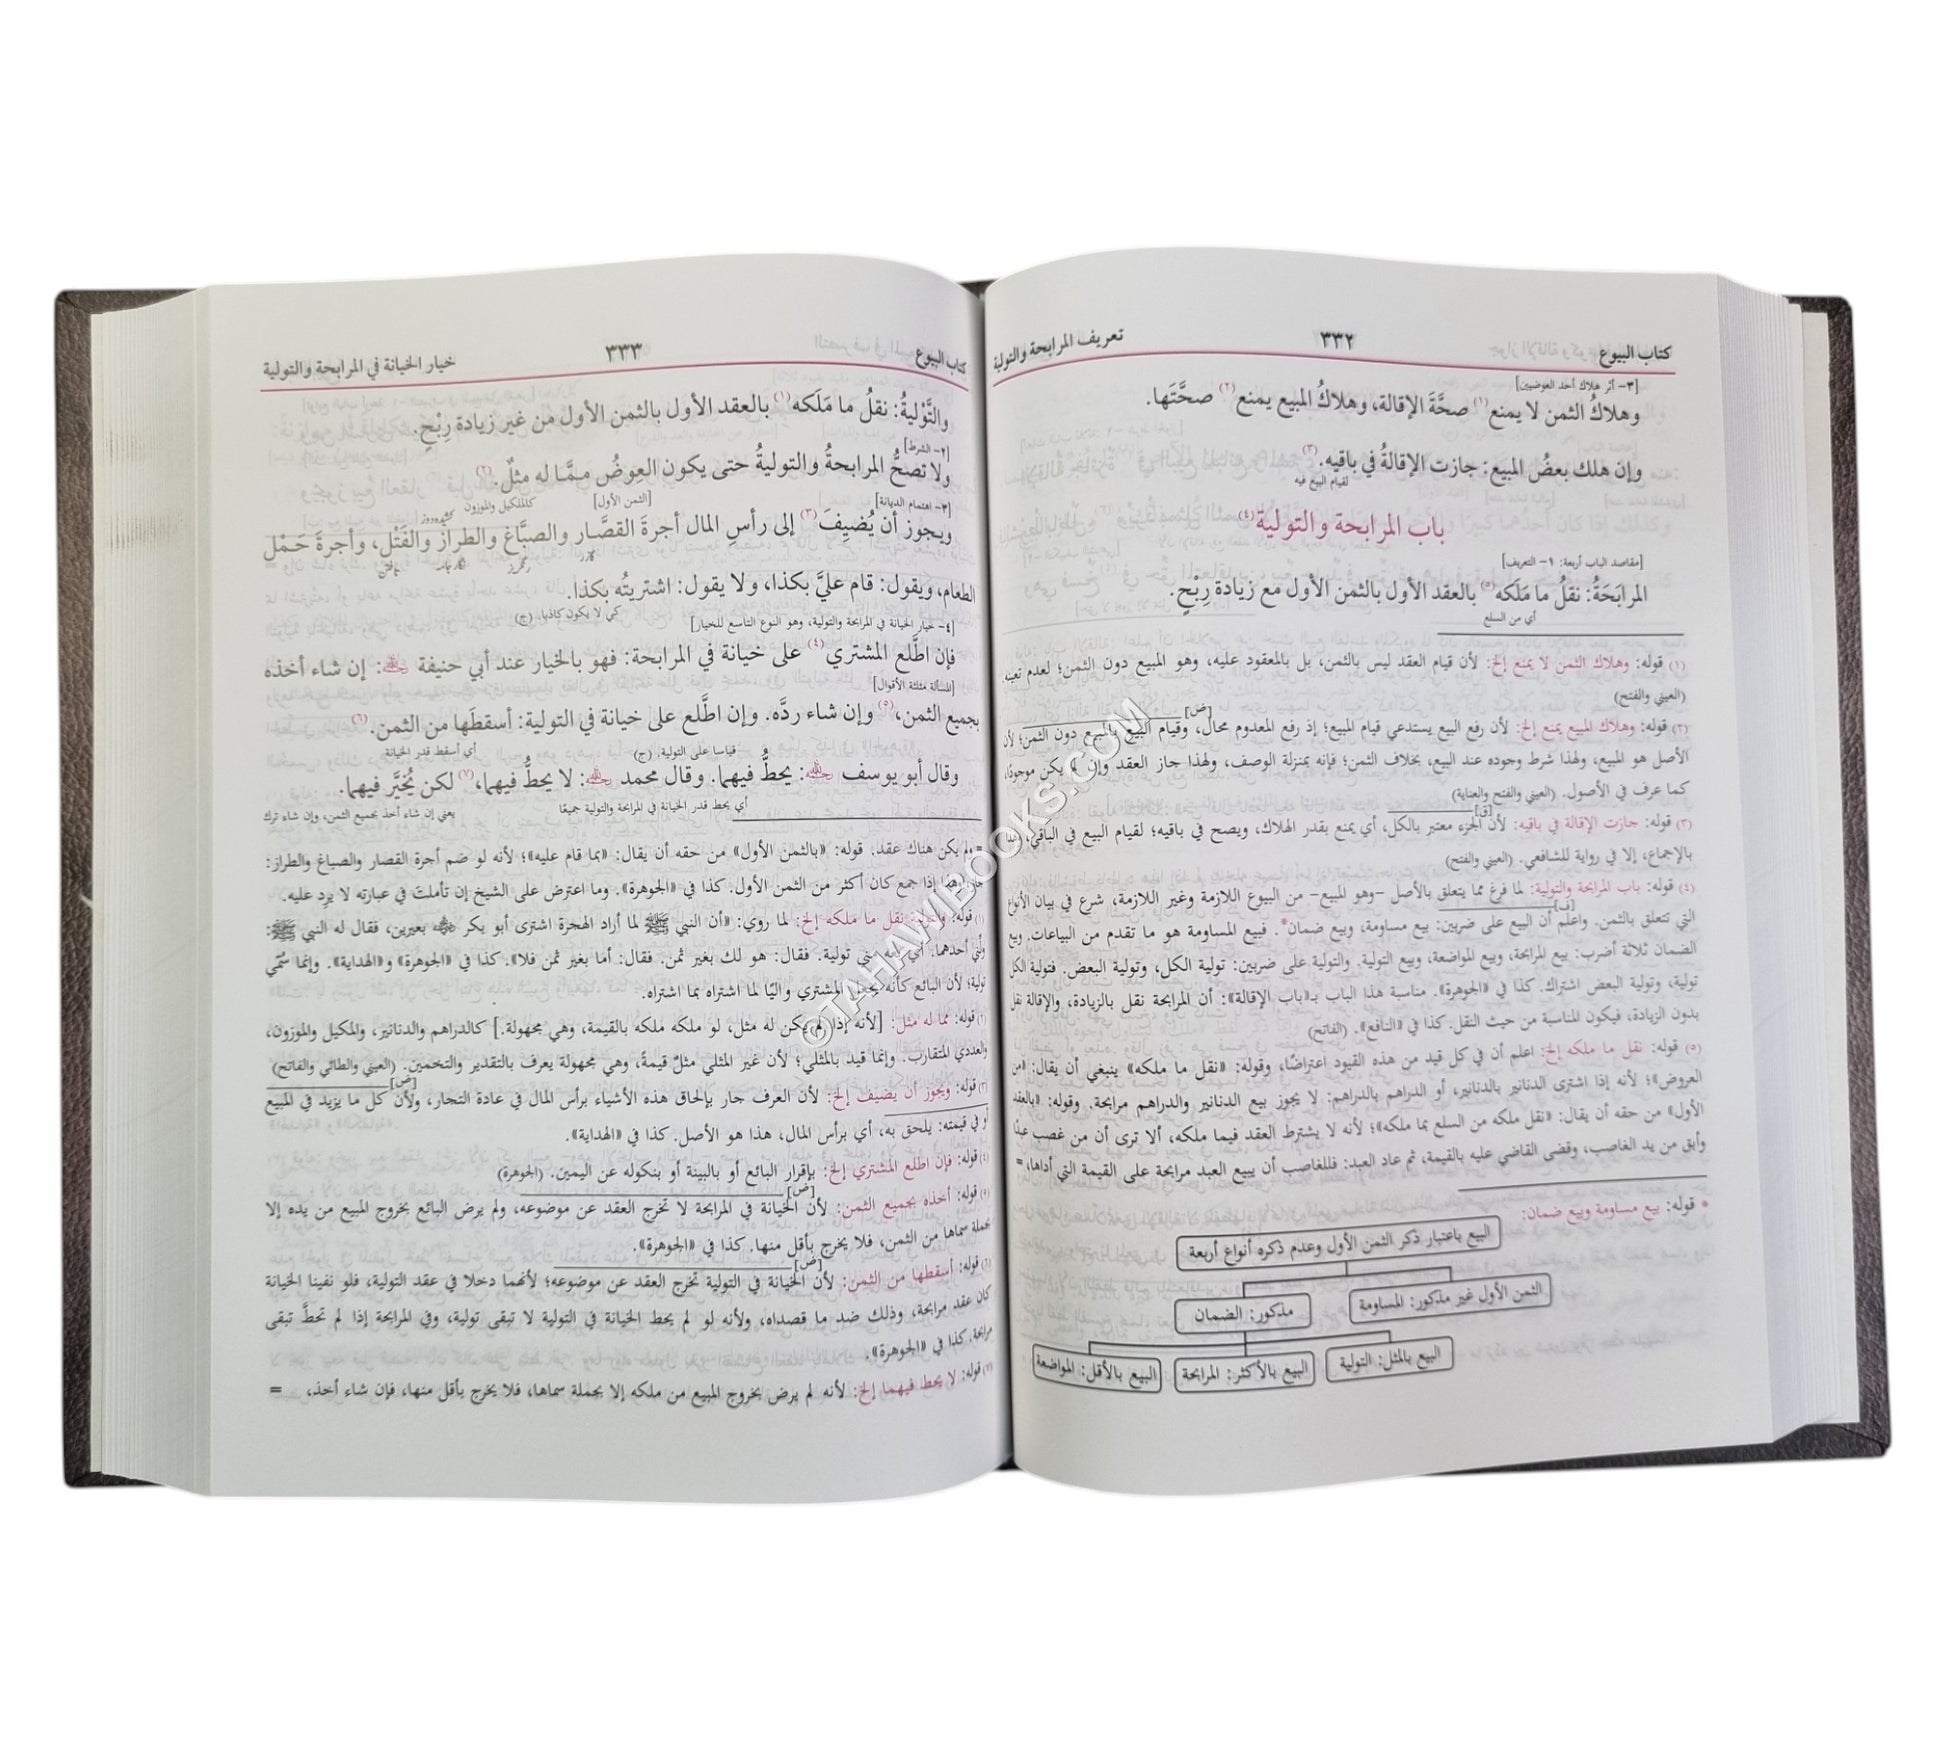 كتاب البيوع
٣٣٢
تعريف المرابحة والتولية
[٣- أثر هلاك أحد العوضين]
وهلاكُ الثمن لا يمنع(١) صحَّةَ الإقالة، وهلاكُ المبيع يمنع(٢) صحَّتَها.
وإن هلك بعضُ المبيع: جازت الإقالةُ في باقيه.(٣)
لقيام البيع فيه
باب المرابحة والتولية(٤)
[مقاصد الباب أربعة: ١- التعريف]
المرابَحَةُ: نقلُ ما مَلَكه(٥) بالعقد الأول بالثمن الأول مع زيادة رِبْحٍ.
أي من السلع
(١) قوله: وهلاك الثمن لا يمنع إلخ: لأن قيام العقد ليس بالثمن، بل بالمعقود عليه، وهو المبيع دون الثمن؛ لعدم تعينه.
(العيني والفتح)
(٢) قوله: وهلاك المبيع يمنع إلخ: لأن رفع البيع يستدعي قيام المبيع؛ إذ رفع المعدوم محال، وقيام البيع بالمبيع دون الثمن؛ لأن
الأصل هو المبيع، ولهذا شرط وجوده عند البيع، بخلاف الثمن؛ فإنه بمنزلة الوصف، ولهذا جاز العقد وإن لم يكن موجودًا،
كما عرف في الأصول. (العيني والفتح والعناية)
(٣) قوله: جازت الإقالة في باقيه: لأن الجزء معتبر بالكل، أي يمنع بقدر الهلاك، ويصح في باقيه؛ لقيام البيع في الباقي، هذا
بالإجماع، إلا في رواية للشافعي. (العيني والفتح)
(٤) قوله: باب المرابحة والتولية: لما فرغ مما يتعلق بالأصل -وهو المبيع- من البيوع اللازمة وغير اللازمة، شرع في بيان الأنواع
التي تتعلق بالثمن. واعلم أن البيع على ضربين: بيع مساومة، وبيع ضمان*. فبيع المساومة هو ما تقدم من البياعات. وبيع
الضمان ثلاثة أضرب: بيع المرابحة، وبيع المواضعة، وبيع التولية. والتولية على ضربين: تولية الكل، وتولية البعض. فتولية الكل
تولية، وتولية البعض اشتراك. كذا في «الجوهرة». مناسبة هذا الباب بـ«باب الإقالة»: أن المرابحة نقل بالزيادة، والإقالة نقل
بدون الزيادة، فيكون المناسبة من حيث النقل. كذا في «النافع». (الفاتح)
(٥) قوله: نقل ما ملكه إلخ: اعلم أن في كل قيد من هذه القيود اعتراضًا، وقوله: «نقل ما ملكه» ينبغي أن يقال: «من
العروض»؛ لأنه إذا اشترى الدنانير بالدنانير، أو الدراهم بالدراهم: لا يجوز بيع الدنانير والدراهم مرابحة. وقوله: «بالعقد
الأول» من حقه أن يقال: «نقل ملكه من السلع بما ملكه»؛ لأنه لا يشترط العقد فيما ملكه، ألا ترى أن من غصب عبدًا
وأبق من يد الغاصب، وقضى القاضي عليه بالقيمة، ثم عاد العبد: فللغاصب أن يبيع العبد مرابحة على القيمة التي أداها، =
* قوله: بيع مساومة وبيع ضمان:
البيع باعتبار ذكر الثمن الأول وعدم ذكره أنواع أربعة
الثمن الأول غير مذكور: المساومة
مذكور: الضمان
البيع بالمثل: التولية
البيع بالأكثر: المرابحة
البيع بالأقل: المواضعة
كتاب البيوع
٣٣٣
خيار الخيانة في المرابحة والتولية
والتَّوْليةُ: نقلُ ما مَلَكه(١) بالعقد الأول بالثمن الأول من غير زيادة رِبْحٍ.
[٢- الشرط]
ولا تصحُّ المرابحةُ والتوليةُ حتى يكون العِوضُ مـمَّـا له مثلٌ.(٢)
[٣- اهتمام الديانة]
[الثمن الأول]
كالمكيل والموزون
ويجوز أن يُضيِفَ(٣) إلى رأسِ المال أجرةَ القصَّار والصبَّاغ والطراز والفَتْل، وأجرةَ حَمْل
الطعام، ويقول: قام عليَّ بكذا، ولا يقول: اشتريتُه بكذا.
كي لا يكون كاذبا. (ج)
[٤- خيار الخيانة في المرابحة والتولية، وهو النوع التاسع للخيار]
فإن اطَّلع المشتري(٤) على خيانة في المرابحة: فهو بالخيار عند أبي حنيفة رحمه الله: إن شاء أخذه
[المسألة مثلثة الأقوال]
بجميع الثمن،(٥) وإن شاء ردَّه. وإن اطَّلع على خيانة في التولية: أسقطَها من الثمن.(٦)
قياسا على التولية. (ج)
أي أسقط قدر الخيانة
وقال أبو يوسف رحمه الله: يحطُّ فيهما. وقال محمد رحمه الله: لا يحطُّ فيهما،(٧) لكن يُخيَّر فيهما.
أي يحط قدر الخيانة في المرابحة والتولية جميعًا
يعني إن شاء أخذ بجميع الثمن، وإن شاء ترك
= ولم يكن هناك عقد. قوله: «بالثمن الأول» من حقه أن يقال: «بما قام عليه»؛ لأنه لو ضم أجرة القصار والصباغ والطراز:
جاز، وهذا إذا جمع كان أكثر من الثمن الأول. كذا في «الجوهرة». وما اعترض على الشيخ إن تأملتَ في عبارته لا يرد عليه.
(١) قوله: والتولية نقل ما ملكه إلخ: لما روي: «أن النبي ﷺ لما أراد الهجرة اشترى أبو بكر رضي الله عنه بعيرين، فقال له النبي ﷺ:
ولِّني أحدهما. أي بعه مني تولية. فقال: هو لك بغير ثمن. فقال: أما بغير ثمن فلا». كذا في «الجوهرة» و«الهداية». وإنما سُمِّي
تولية؛ لأن البائع كأنه يجعل المشتري واليًا لما اشتراه بما اشتراه.
(٢) قوله: مما له مثل: [لأنه إذا لم يكن له مثل، لو ملكه ملكه بالقيمة، وهي مجهولة.] كالدراهم والدنانير، والمكيل والموزون،
والعددي المتقارب. وإنما قيد بالمثلي؛ لأن غير المثلي مثلٌ قيمةً، وهي مجهولة يعرف بالتقدير والتخمين. (العيني والطائي والفاتح)
(٣) قوله: ويجوز أن يضيف إلخ: لأن العرف جار بإلحاق هذه الأشياء برأس المال في عادة التجار، ولأن كل ما يزيد في المبيع
أو في قيمته: يلحق به، أي برأس المال، هذا هو الأصل. كذا في «الهداية».
(٤) قوله: فإن اطلع المشتري إلخ: بإقرار البائع أو بالبينة أو بنكوله عن اليمين. (الجوهرة)
(٥) قوله: أخذه بجميع الثمن: لأن الخيانة في المرابحة لا تخرج العقد عن موضوعه، ولم يرض البائع بخروج المبيع من يده إلا
بجملة سماها من الثمن، فلا يخرج بأقل منها. كذا في «الجوهرة».
(٦) قوله: أسقطها من الثمن: لأن الخيانة في التولية تخرج العقد عن موضوعه؛ لأنهما دخلا في عقد التولية، فلو نفينا الخيانة
كان عقد مرابحة، وذلك ضد ما قصداه، ولأنه لو لم يحط الخيانة في التولية لا تبقى تولية، وفي المرابحة إذا لم تحطَّ تبقى
مرابحة. كذا في «الجوهرة».
(٧) قوله: لا يحط فيهما إلخ: لأنه لم يرض بخروج المبيع من ملكه إلا بجملة سماها، فلا يخرج بأقل منها، فإن شاء أخذ، =
©TAHAWIBOOKS.COM